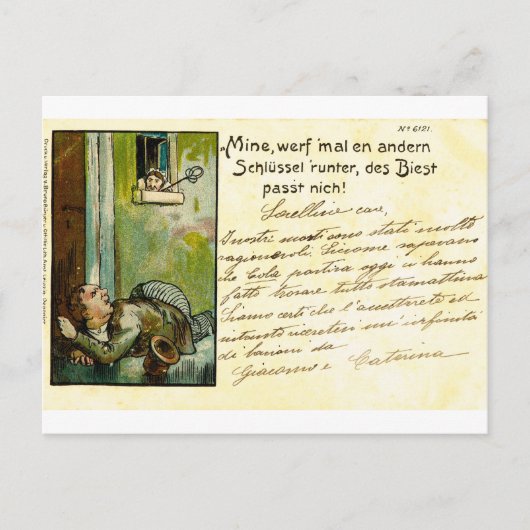 No 6121.
„Mine, werf 'mal en andern
Schlüssel 'runter, des Biest
passt nich!
Sorelline care,
I nostri mosti sono stati molto
ragionevoli. Siccome sapevano
che Lola partiva oggi ci hanno
fatto trovare tutto stamattina
Siamo certi che l'accetterete ed
intanto ricevete un'infinità
di bacioni da
Giacomo e Caterina